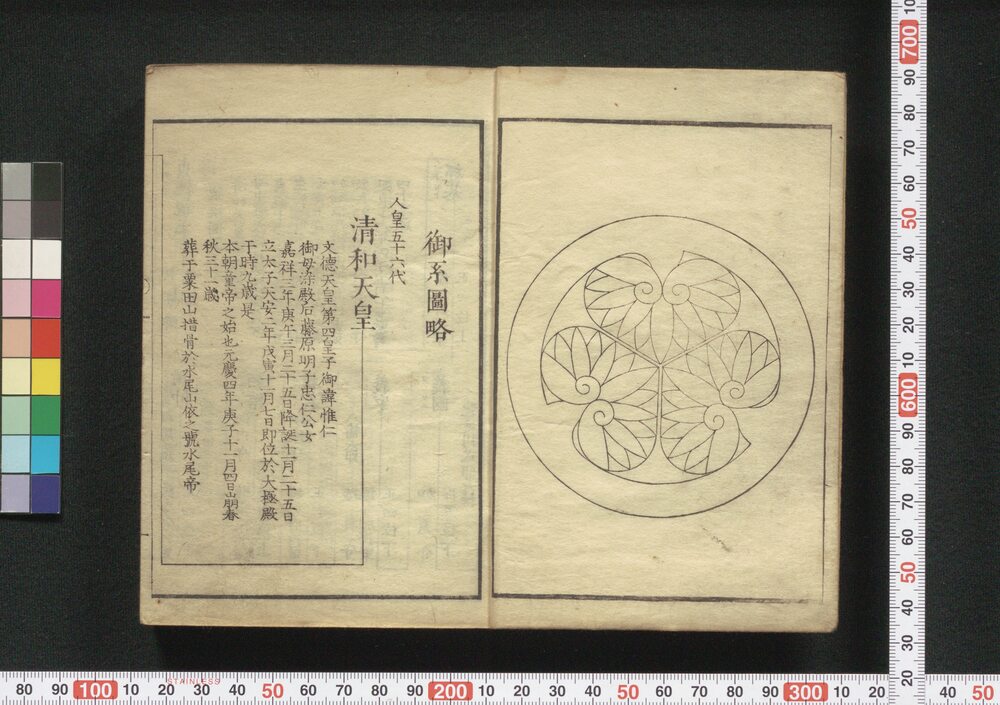 御系圖略
人皇五十六代
清和天皇
文德天皇第四皇子御諱惟仁
御母染殿后藤原明子忠仁公女
嘉祥三年庚午三月二十五日降誕十一月二十五日
立太子天安二年戊寅十一月七日即位於大極殿
于時九歳是
本朝童帝之始也元慶四年庚子十二月四日崩春
秋三十一歳
葬于粟田山措骨於水尾山依之號水尾帝
80 90 100 10 20 30 40 50 60 70 80 90 200 10 20 30 40 50 60 70 80 90 300 10 20 40 50
STAINLESS
10
700
90
80
70
60
50
40
30
20
10
600
90
80
70
60
50
40
30
20